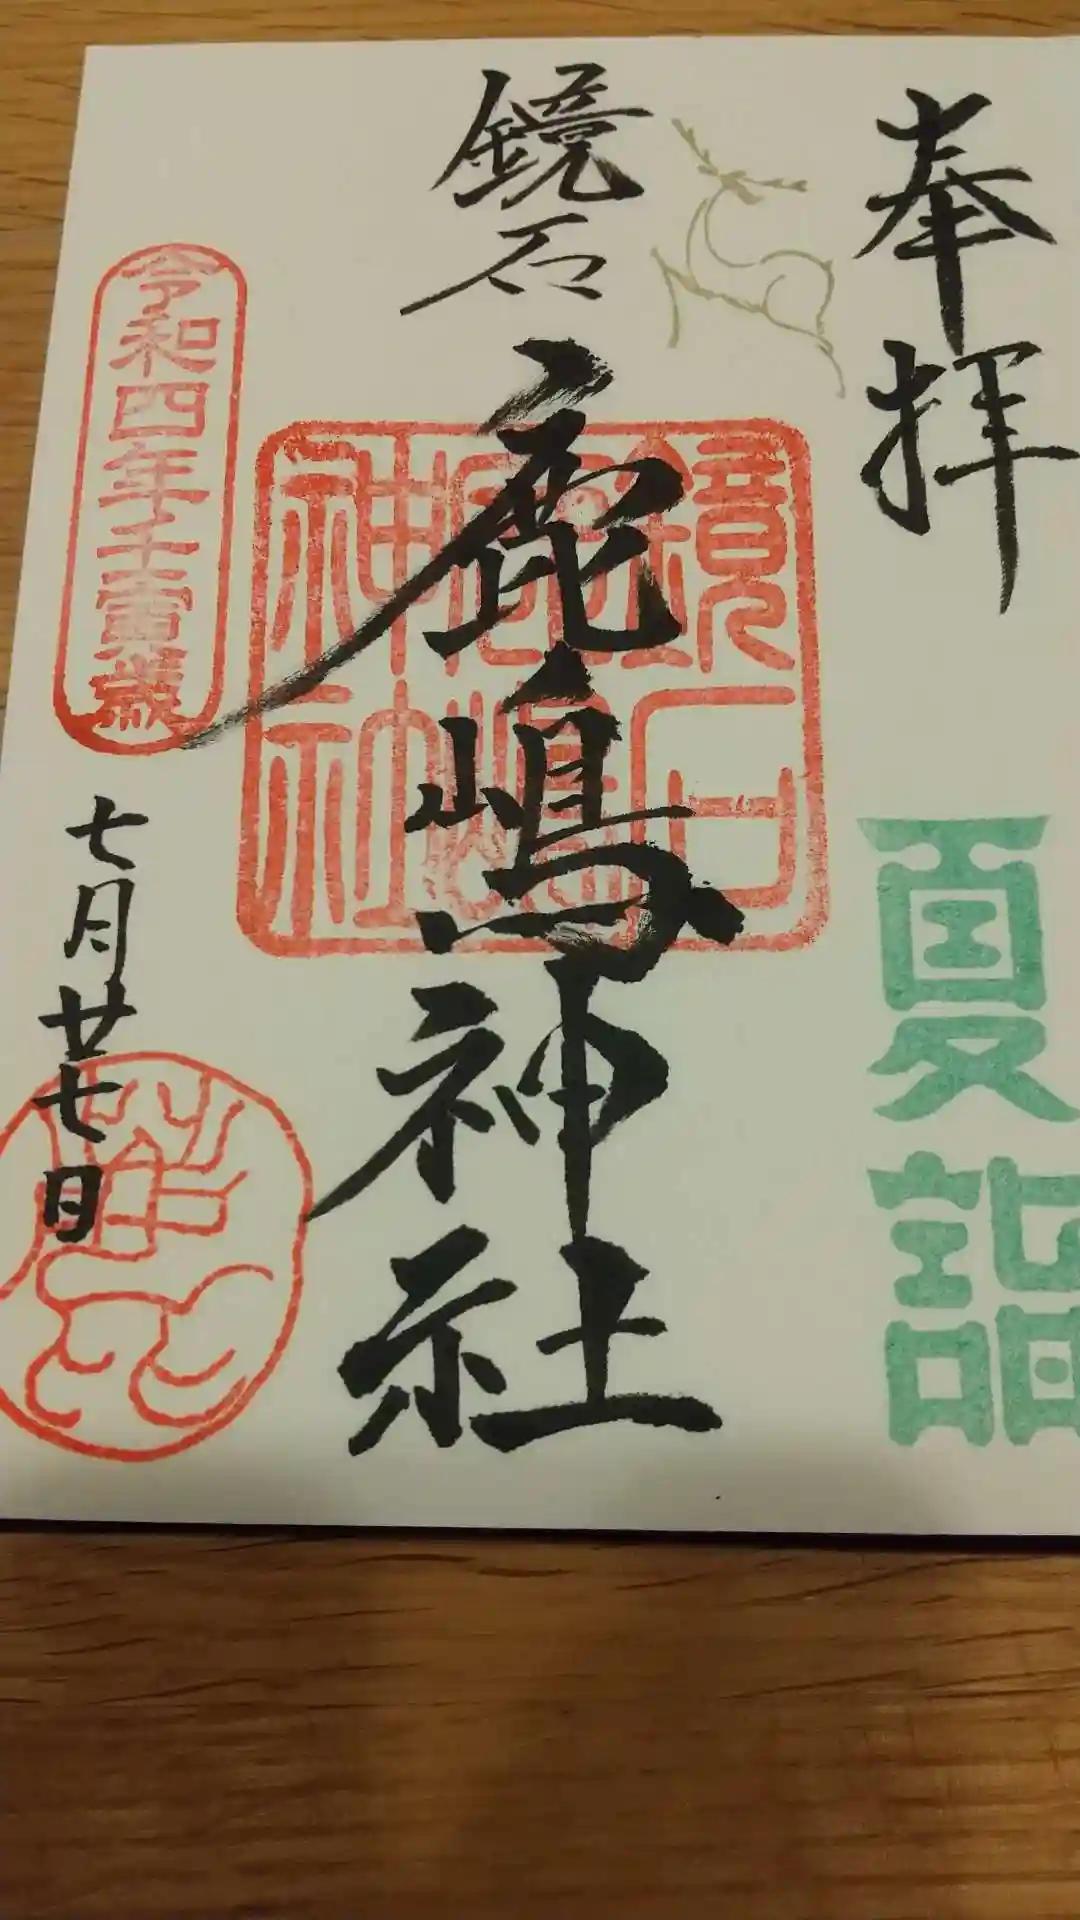 奉拝
夏詣
鏡石
鹿嶋神社
鏡石
鹿嶋
神社
令和四年壬寅歳
七月廿七日